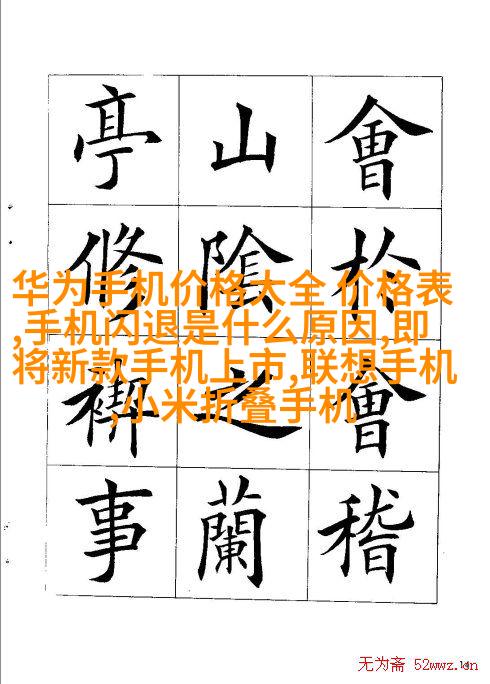 會於會稽
山陰之蘭
亭脩禊事
华为手机价格大全 价格表
,手机闪退是什么原因,即
将新款手机上市,联想手机
,小米折叠手机
无为斋 52wwz.cn